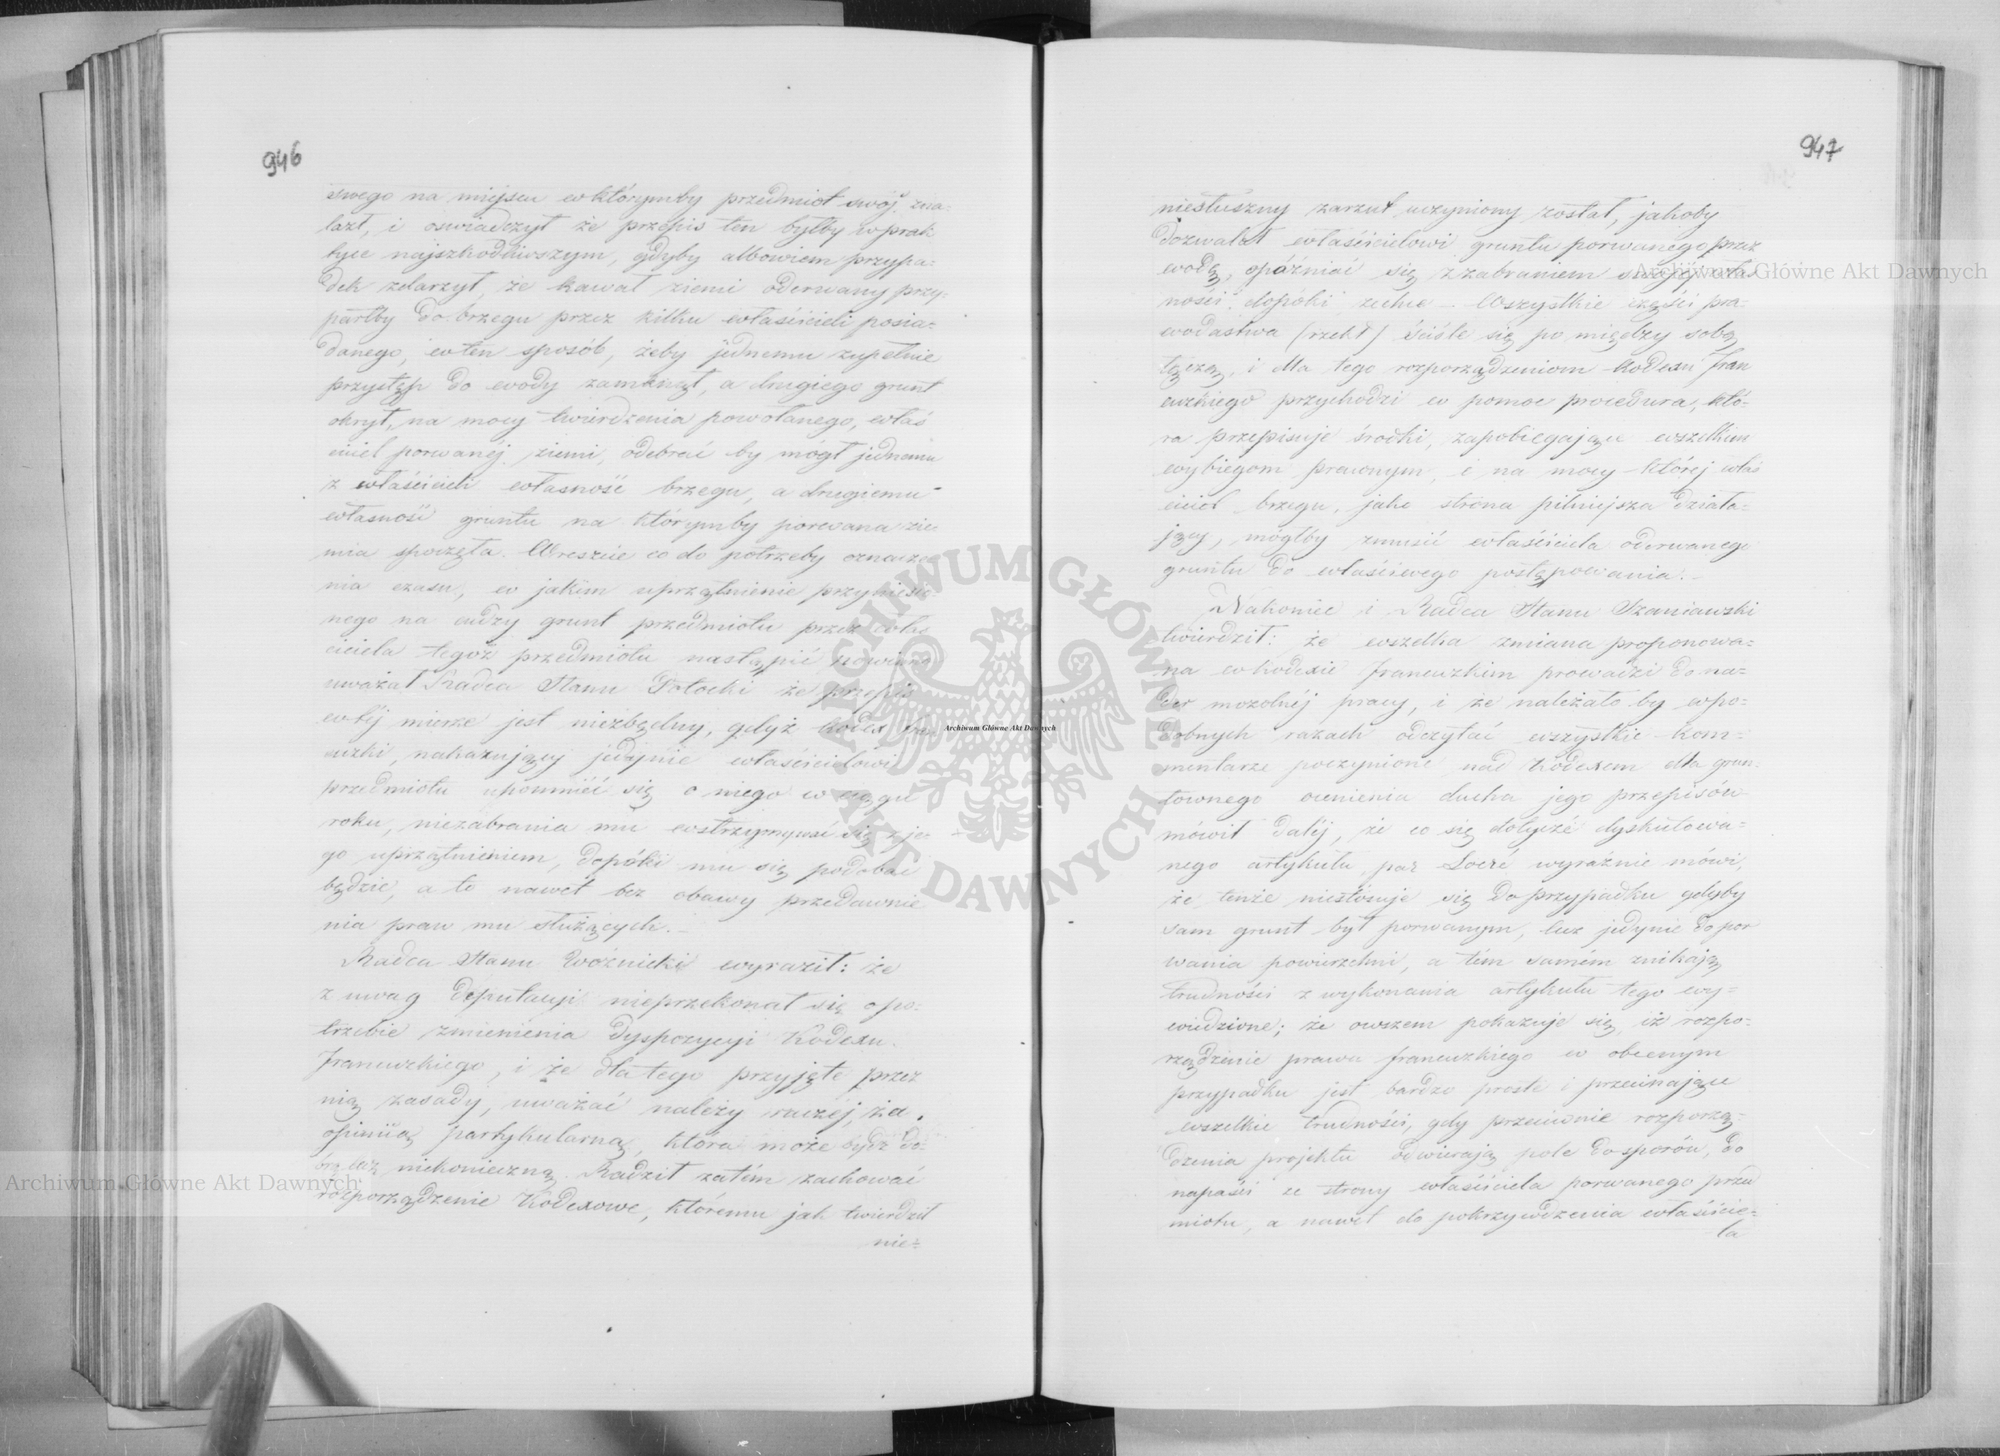 946
swego na miejscu w którymby przedmiot swój zna-
lazł, i oświadczył że przepis ten byłby w prak
tyce najszkodliwszym, gdyby albowiem przypa-
dek zdarzył, że kawał ziemi oderwany przy-
parłby do brzegu przez kilku właścicieli posia-
danego, w ten sposób, żeby jednemu zupełnie
przystęp do wody zamknął, a drugiego grunt
okrył, na mocy twierdzenia powołanego, właś
ciciel porwanej ziemi, odebrać by mógł jednemu
z właścicieli własność brzegu, a drugiemu
własność gruntu na którymby porwana zie-
mia spoczęła. Wreszcie co do potrzeby oznacze
nia czasu, w jakim uprzątnienie przyniesio
nego na cudzy grunt przedmiotu przez właś
ciciela tegoż przedmiotu nastąpić powinno
uważał Radca Stanu Potocki że przepis
w tej mierze jest niezbędny, gdyż Kodex fran
cuzki, nakazujący jedynie właścicielowi
przedmiotu upomnieć się o niego w ciągu
roku, niezabrania mu wstrzymywać się z je-
go uprzątnieniem, dopóki mu się podobać
będzie, a to nawet bez obawy przedawnie
nia praw mu służących.
Radca Stanu Woźnicki wyraził: że
z uwag Deputacyi nieprzekonał się o po-
trzebie zmienienia dyspozycyi Kodexu
francuzkiego, i że dla tego przyjęte przez
nią zasady, uważać należy raczej, za
opiniią partykularną, która może bydź do-
brą lecz niekonieczną. Radził zatém zachować
rozporządzenie Kodexowe, któremu jak twierdził
nie-
947
niesłuszny zarzut uczyniony został, jakoby
dozwalał właścicielowi gruntu porwanego przez
wodę, opóźniać się z zabraniem swojej włas-
ności dopóki zechce. Wszystkie części pra-
wodastwa (rzekł) ściśle się po między sobą
łączą, i dla tego rozporządzeniom Kodexu fran
cuzkiego przychodzi w pomoc procedura, któ-
ra przepisuje środki, zapobiegające wszelkim
wybiegom prawnym, i na mocy której właś
ciciel brzegu, jako strona pilniejsza działa-
jący, mógłby zmusić właściciela oderwanego
gruntu do właściwego postępowania.
Nakoniec i Radca Stanu Szaniawski
twierdził: że wszelka zmiana proponowa-
na w Kodexie francuzkim prowadzi do na-
der mozolnej pracy, i że należało by w po-
dobnych razach odczytać wszystkie kom-
mentarze poczynione nad Kodexem dla grun-
townego ocenienia ducha jego przepisów
mówił dalej, że co się dotycze dyskutowa-
nego artykułu, pan Locré wyraźnie mówi,
że tenże niestosuje się do przypadku gdyby
sam grunt był porwanym, lecz jedynie do por
wania powierzchni, a tém samém znikają
trudności z wykonania artykułu tego wy-
wiedzione; że owszem pokazuje się, iż rozpo-
rządzenie prawa francuzkiego w obecnym
przypadku jest bardzo proste i przecinające
wszelkie trudności, gdy przeciwnie rozporzą-
dzenia projektu odwierają pole do sporów, do
napaści ze strony właściciela porwanego przed
miotu, a nawet do pokrzywdzenia właścicie-
la
Archiwum Główne Akt Dawnych
Archiwum Główne Akt Dawnych
Archiwum Główne Akt Dawnych
ARCHIWUM GŁÓWNE AKT DAWNYCH